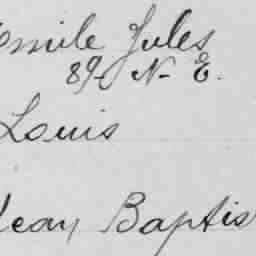 Emile Jules
89 N. E.
Louis
Jean Baptis